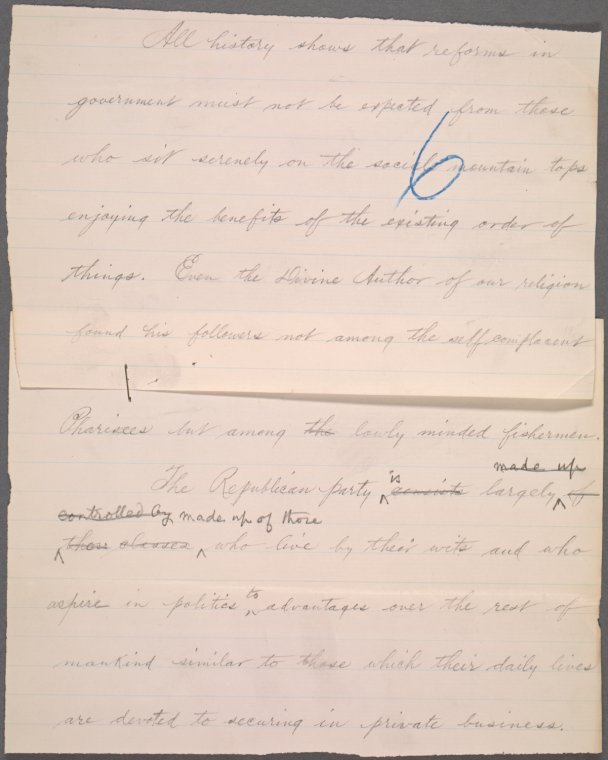 All history shows that reforms in
government must not be expected from those
who sit serenely on the social mountain tops
6
enjoying the benefits of the existing order of
things. Even the Divine Author of our religion
found his followers not among the self complacent
Pharisees but among the lowly minded fishermen.
made up
The Republican party is consists largely of
controlled by made up of those
those classes who live by their wits and who
aspire in politics to advantages over the rest of
mankind similar to those which their daily lives
are devoted to securing in private business.